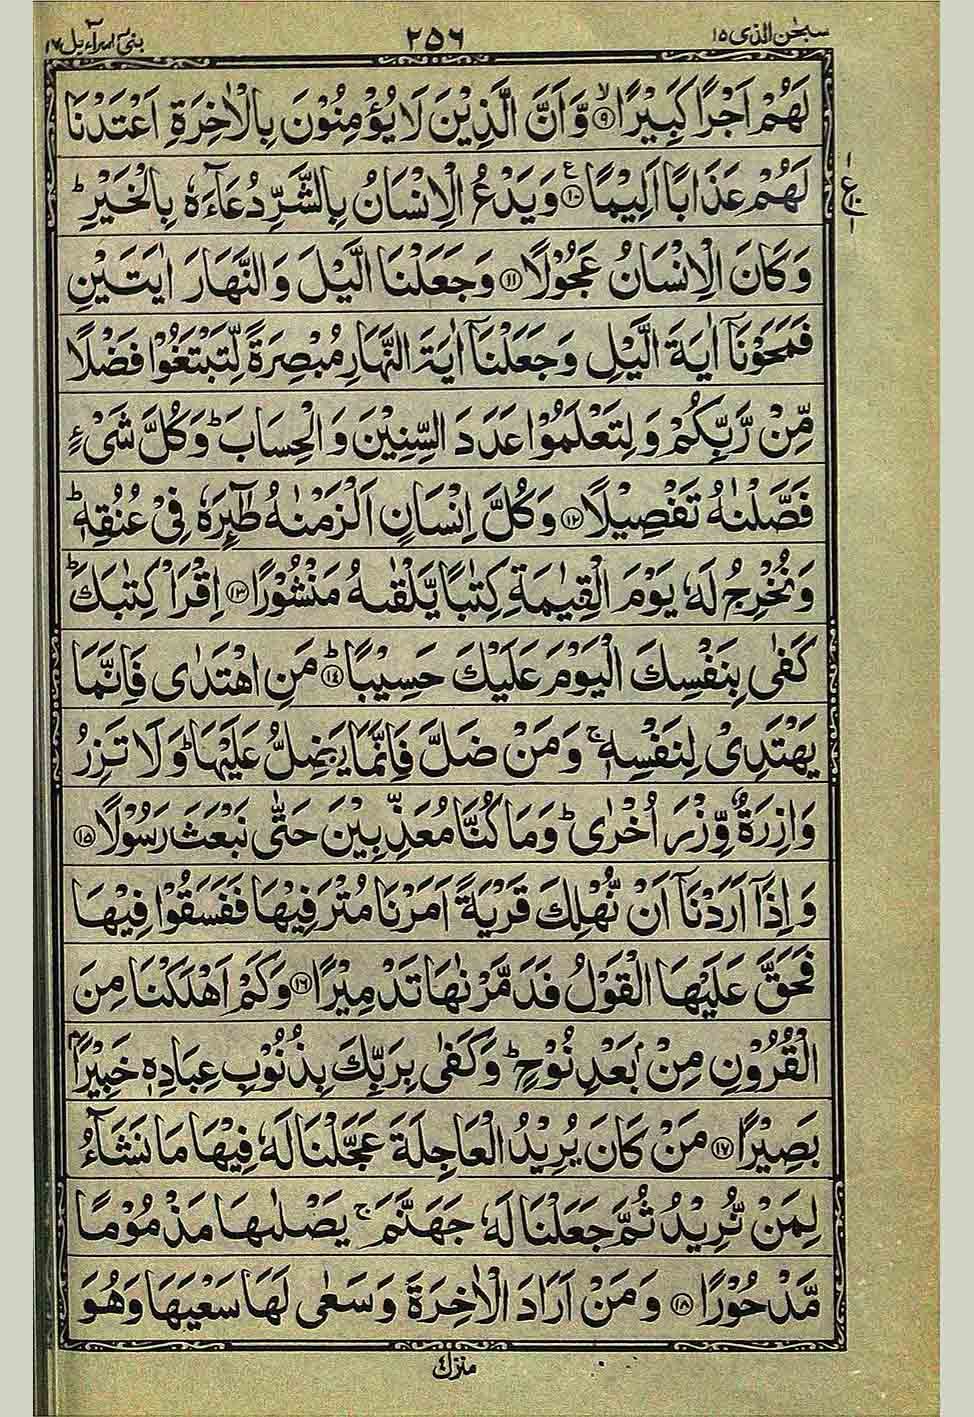 سبحٰن الذی ۱۵ ۲۵۶ بنیٓ اسرآءیل ۱۷
لَهُمْ اَجْرًا كَبِيْرًا ۙ﴿۹﴾ وَّ اَنَّ الَّذِيْنَ لَا يُؤْمِنُوْنَ بِالْاٰخِرَةِ اَعْتَدْنَا
لَهُمْ عَذَابًا اَلِيْمًا ﴿۱۰﴾ ع وَيَدْعُ الْاِنْسَانُ بِالشَّرِّ دُعَآءَهٗ بِالْخَيْرِ ؕ
وَكَانَ الْاِنْسَانُ عَجُوْلًا ﴿۱۱﴾ وَجَعَلْنَا الَّيْلَ وَالنَّهَارَ اٰيَتَيْنِ
فَمَحَوْنَآ اٰيَةَ الَّيْلِ وَجَعَلْنَآ اٰيَةَ النَّهَارِ مُبْصِرَةً لِّتَبْتَغُوْا فَضْلًا
مِّنْ رَّبِّكُمْ وَلِتَعْلَمُوْا عَدَدَ السِّنِيْنَ وَالْحِسَابَ ؕ وَكُلَّ شَیْءٍ
فَصَّلْنٰهُ تَفْصِيْلًا ﴿۱۲﴾ وَكُلَّ اِنْسَانٍ اَلْزَمْنٰهُ طٰٓئِرَهٗ فِیْ عُنُقِهٖ ؕ
وَنُخْرِجُ لَهٗ يَوْمَ الْقِيٰمَةِ كِتٰبًا يَّلْقٰىهُ مَنْشُوْرًا ﴿۱۳﴾ اِقْرَاْ كِتٰبَكَ ؕ
كَفٰى بِنَفْسِكَ الْيَوْمَ عَلَيْكَ حَسِيْبًا ؕ﴿۱۴﴾ مَنِ اهْتَدٰى فَاِنَّمَا
يَهْتَدِیْ لِنَفْسِهٖ ۚ وَمَنْ ضَلَّ فَاِنَّمَا يَضِلُّ عَلَيْهَا ؕ وَلَا تَزِرُ
وَازِرَةٌ وِّزْرَ اُخْرٰى ؕ وَمَا كُنَّا مُعَذِّبِيْنَ حَتّٰى نَبْعَثَ رَسُوْلًا ﴿۱۵﴾
وَاِذَآ اَرَدْنَآ اَنْ نُّهْلِكَ قَرْيَةً اَمَرْنَا مُتْرَفِيْهَا فَفَسَقُوْا فِيْهَا
فَحَقَّ عَلَيْهَا الْقَوْلُ فَدَمَّرْنٰهَا تَدْمِيْرًا ﴿۱۶﴾ وَكَمْ اَهْلَكْنَا مِنَ
الْقُرُوْنِ مِنْۢ بَعْدِ نُوْحٍ ؕ وَكَفٰى بِرَبِّكَ بِذُنُوْبِ عِبَادِهٖ خَبِيْرًۢا
بَصِيْرًا ﴿۱۷﴾ مَنْ كَانَ يُرِيْدُ الْعَاجِلَةَ عَجَّلْنَا لَهٗ فِيْهَا مَا نَشَآءُ
لِمَنْ نُّرِيْدُ ثُمَّ جَعَلْنَا لَهٗ جَهَنَّمَ ۚ يَصْلٰىهَا مَذْمُوْمًا
مَّدْحُوْرًا ﴿۱۸﴾ وَمَنْ اَرَادَ الْاٰخِرَةَ وَسَعٰى لَهَا سَعْيَهَا وَهُوَ
منزل ۴